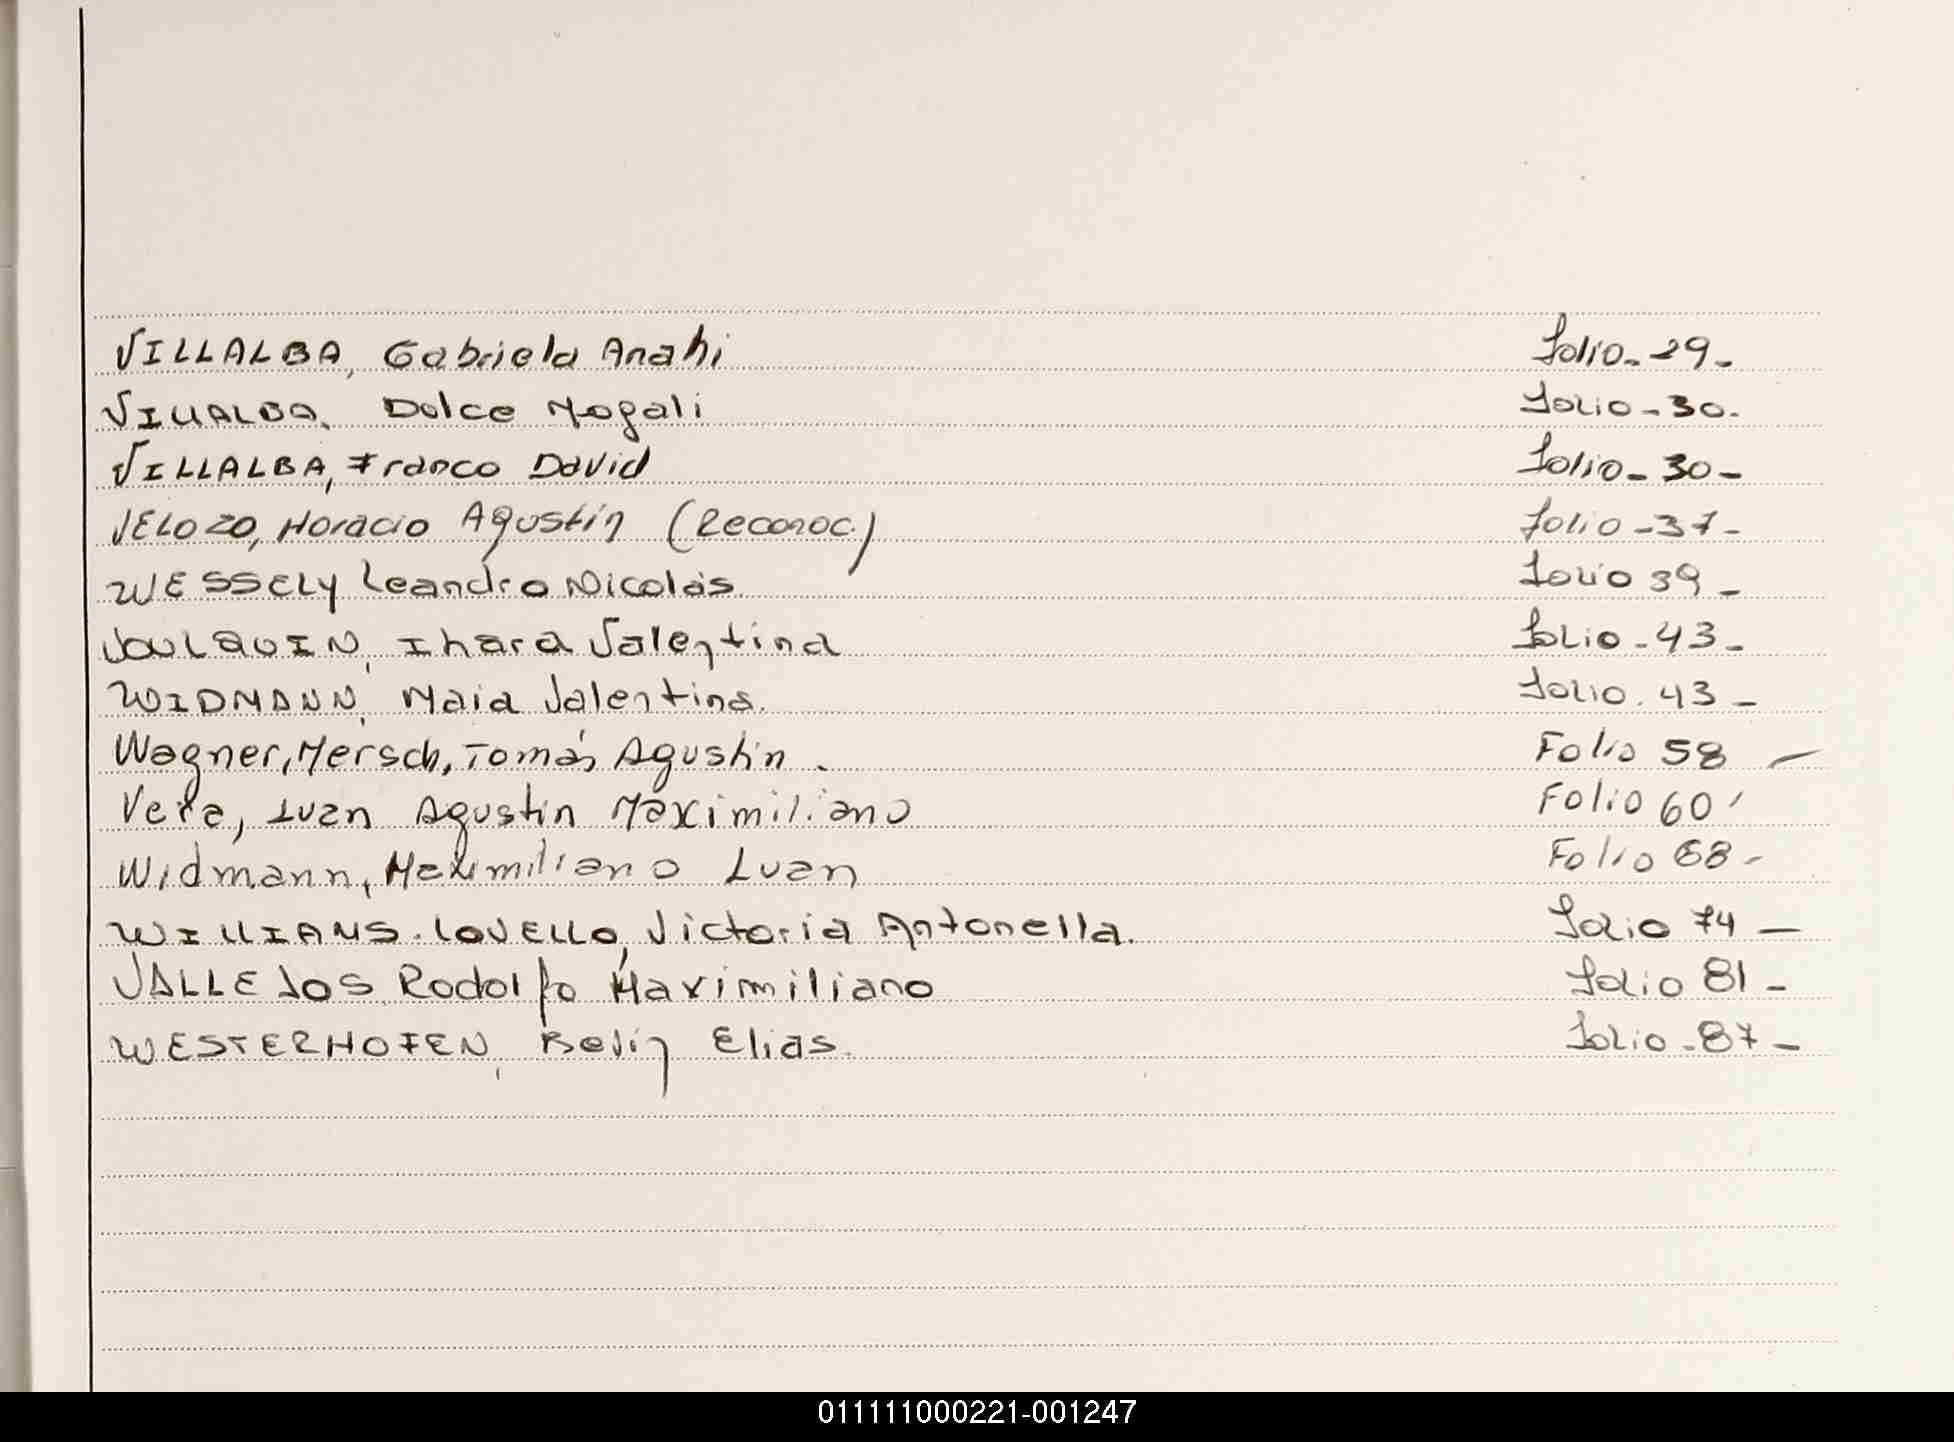 VILLALBA, Gabriela Anahi Folio - 29 -
VILLALBA, Dulce Magali Folio - 30.
VILLALBA, Franco David Folio - 30 -
VELOZO, Horacio Agustín (Reconoc.) Folio - 37 -
WESSELY Leandro Nicolás Folio 39 -
Ihara Valentina Folio - 43 -
WIDMANN, Maia Valentina. Folio. 43 -
Wagner, Mersch, Tomás Agustín. Folio 58 -
Vera, Luan Agustin Maximiliano Folio 60 -
Widmann, Maximiliano Luan Folio 68 -
WILLIAMS. LOVELLO, Victoria Antonella. Folio 74 -
VALLEJOS Rodolfo Maximiliano Folio 81 -
WESTERHOFEN, Elias. Folio - 87 -
011111000221-001247